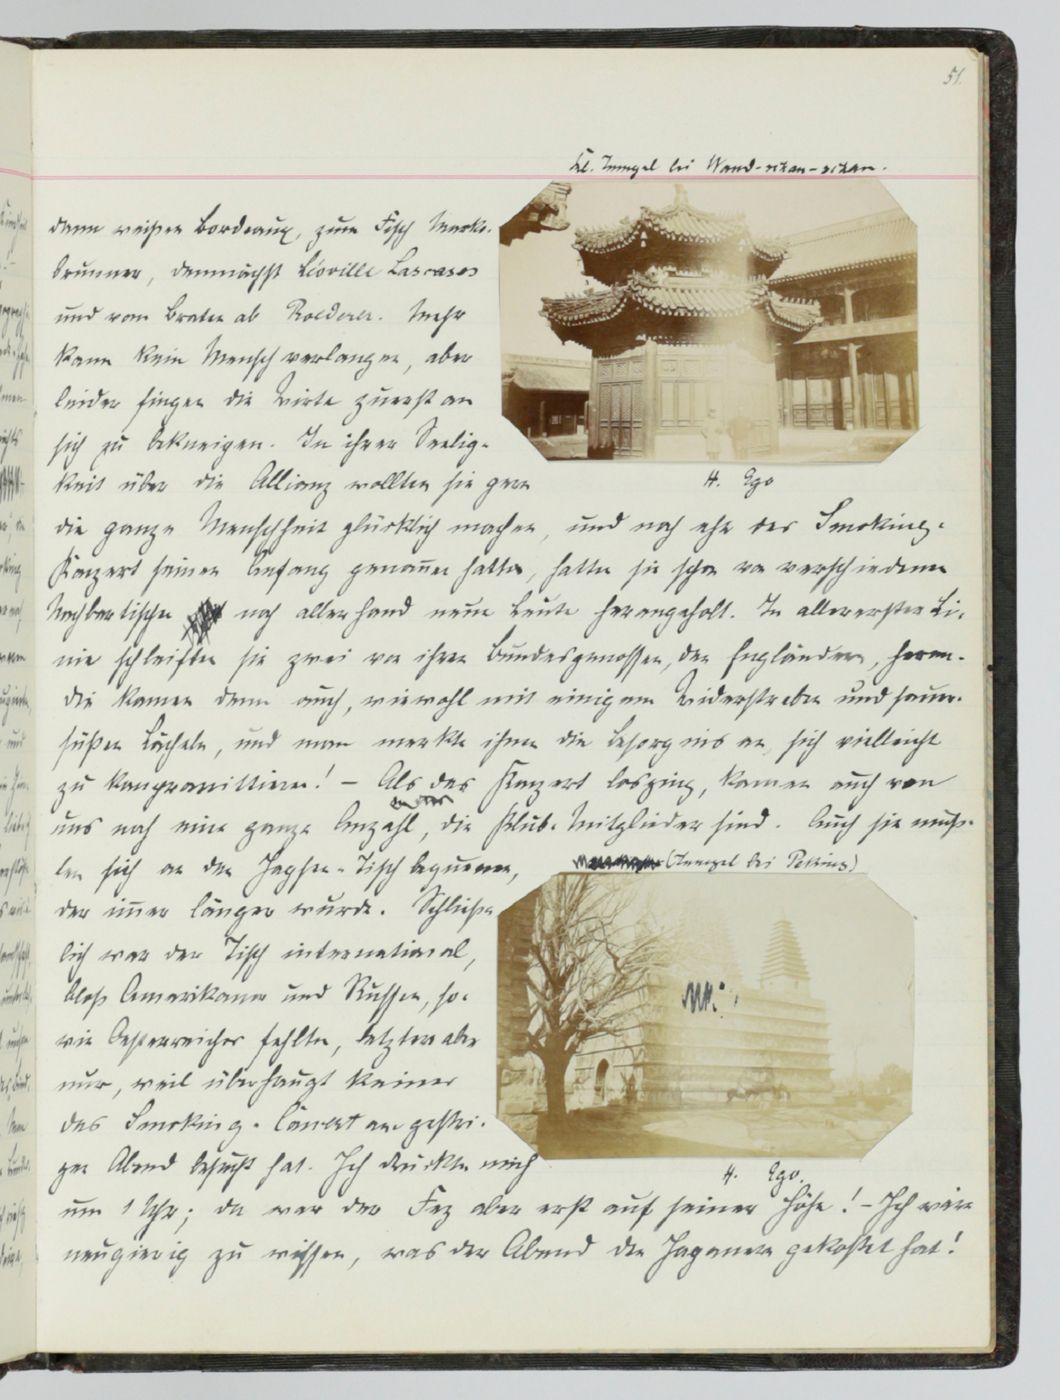 51.
Kl. Tempel bei Wand-schan-schan.
dann weißen Bordeaux, zum Fisch Marko-
brunner, demnächst Léoville Lascases
und vom Braten ab Roederer. Mehr
kann kein Mensch verlangen, aber
leider fingen die Wirte zuerst an
sich zu bekneipen. In ihrer Seelig-
keit über die Allianz wollten sie gern
H. Ego
die ganze Menschheit glücklich machen, und noch ehe das Smoking-
Konzert seinen Anfang genom̄en hatte, hatten sie schon von verschiedenen
Nachbartischen noch allerhand neue Leute herangeholt. In allererster Li-
nie schleiften sie zwei von ihren Bundesgenossen, den Engländern, heran.
Die kamen denn auch, wiewohl mit einigem Widerstreben und sauer-
süßem Lächeln, und man merkte ihnen die Besorgnis an, sich vielleicht
zu kompromittieren! – Als das Konzert losging, kamen auch von
uns noch eine ganze Anzahl, die Klub-Mitglieder sind. Auch sie muß-
ten sich an den Japsen-Tisch bequemen,
(Tempel bei Peking)
der im̄er länger wurde. Schließ-
lich war der Tisch international,
bloß Amerikaner und Russen, so-
wie Oesterreicher fehlten, letztere aber
nur, weil überhaupt keiner
das Smoking-Concert am gestri-
gen Abend besucht hat. Ich drückte mich
H. Ego.
um 1 Uhr; da war der Fez aber erst auf seiner Höhe! – Ich wäre
neugierig zu wissen, was der Abend den Japanern gekostet hat!